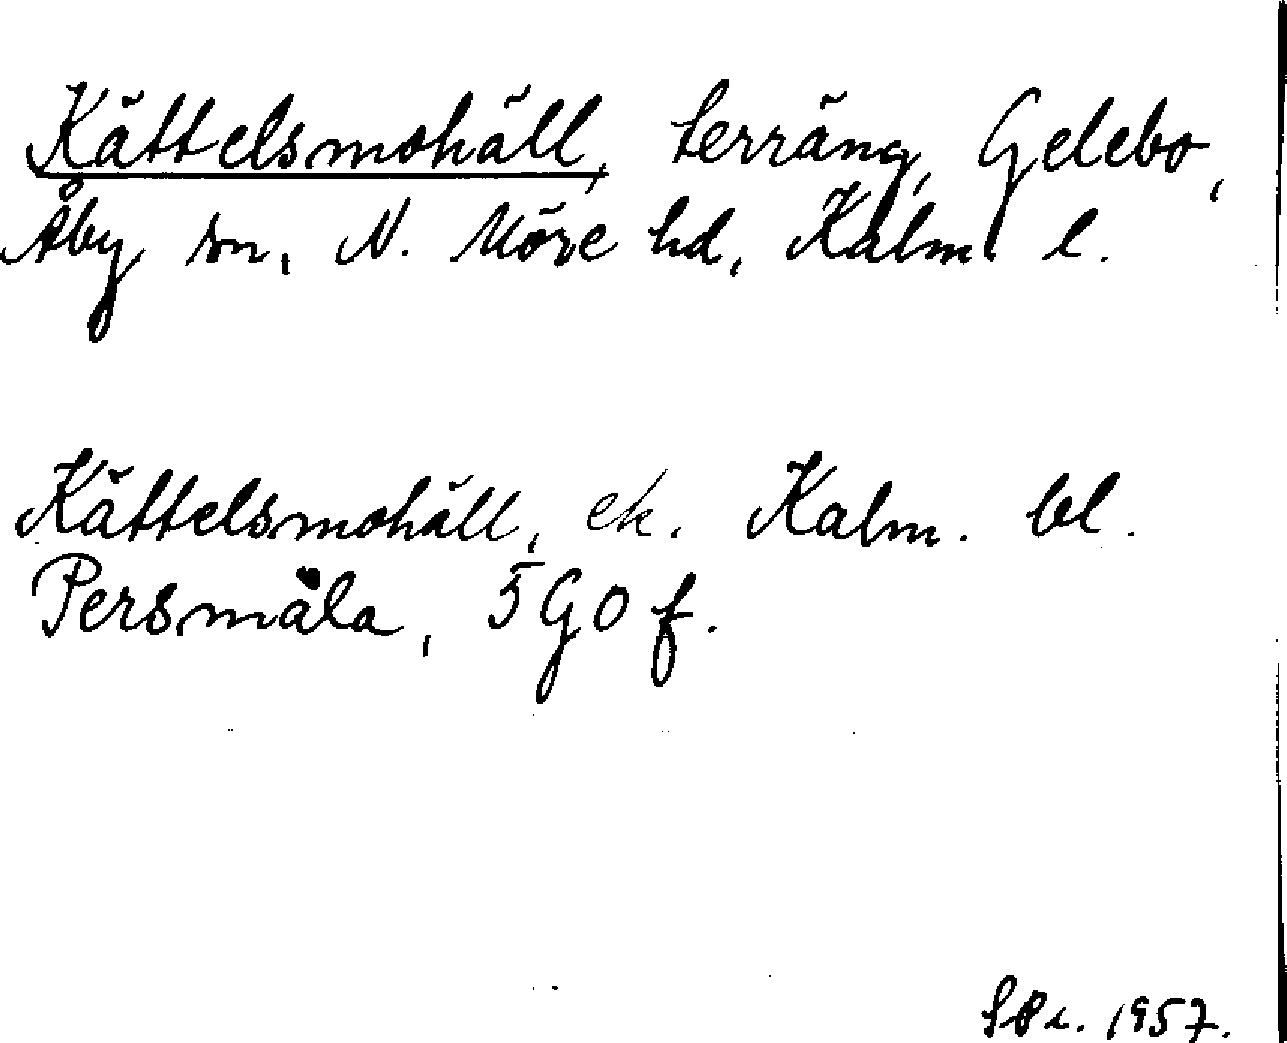 Kättelsmohäll, terräng, Gelebo,
Åby sn, N. Möre hd, Kalm. l.
Kättelsmohäll, ek. Kalm. bl.
Persmåla, 5 G O f.
1957.